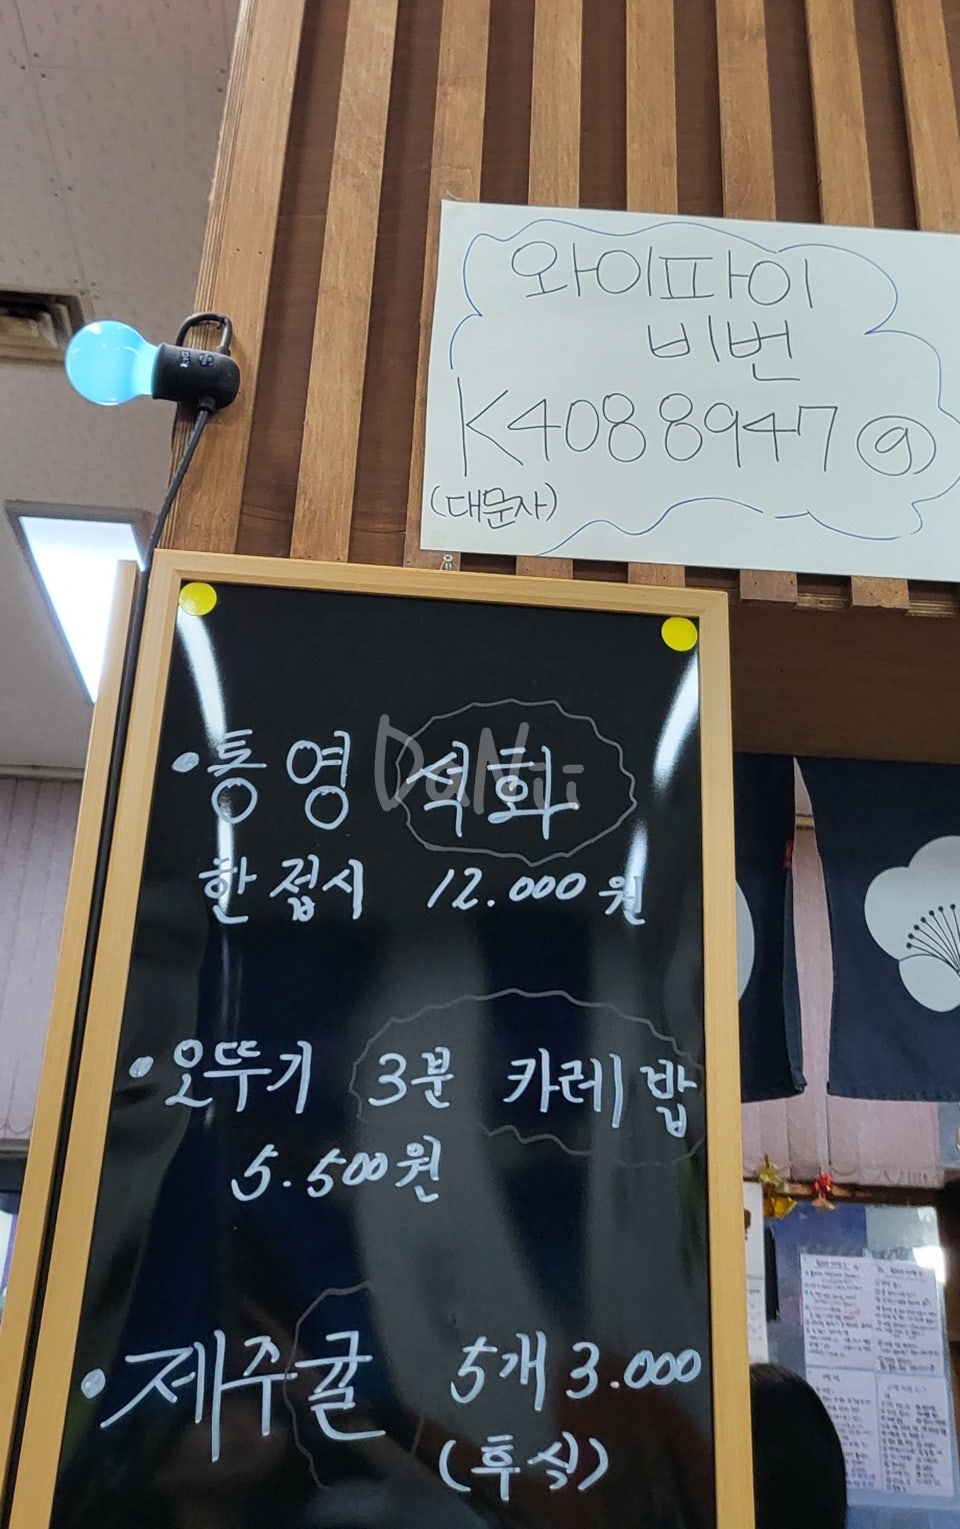 와이파이
비번
K4088947 9
(대문자)
• 통영 석화
한접시 12.000원
• 오뚜기 3분 카레밥
5.500원
• 제주귤 5개 3.000
(후식)
DaNii